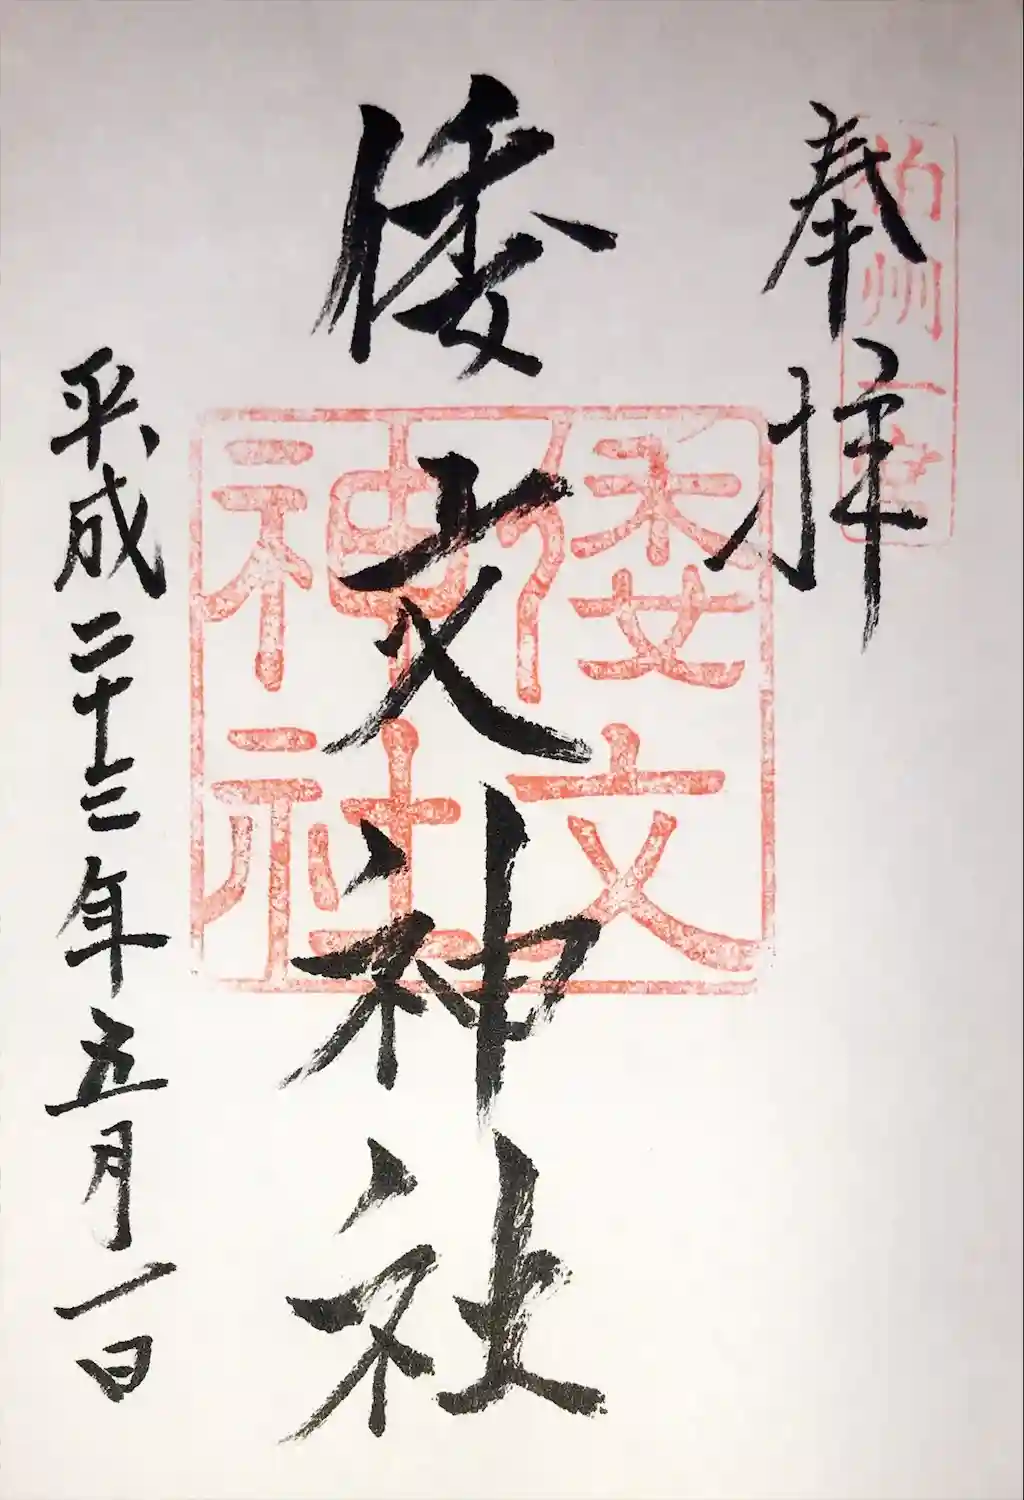 奉拝
伯州一宮
倭文神社
倭文神社
平成二十三年五月一日